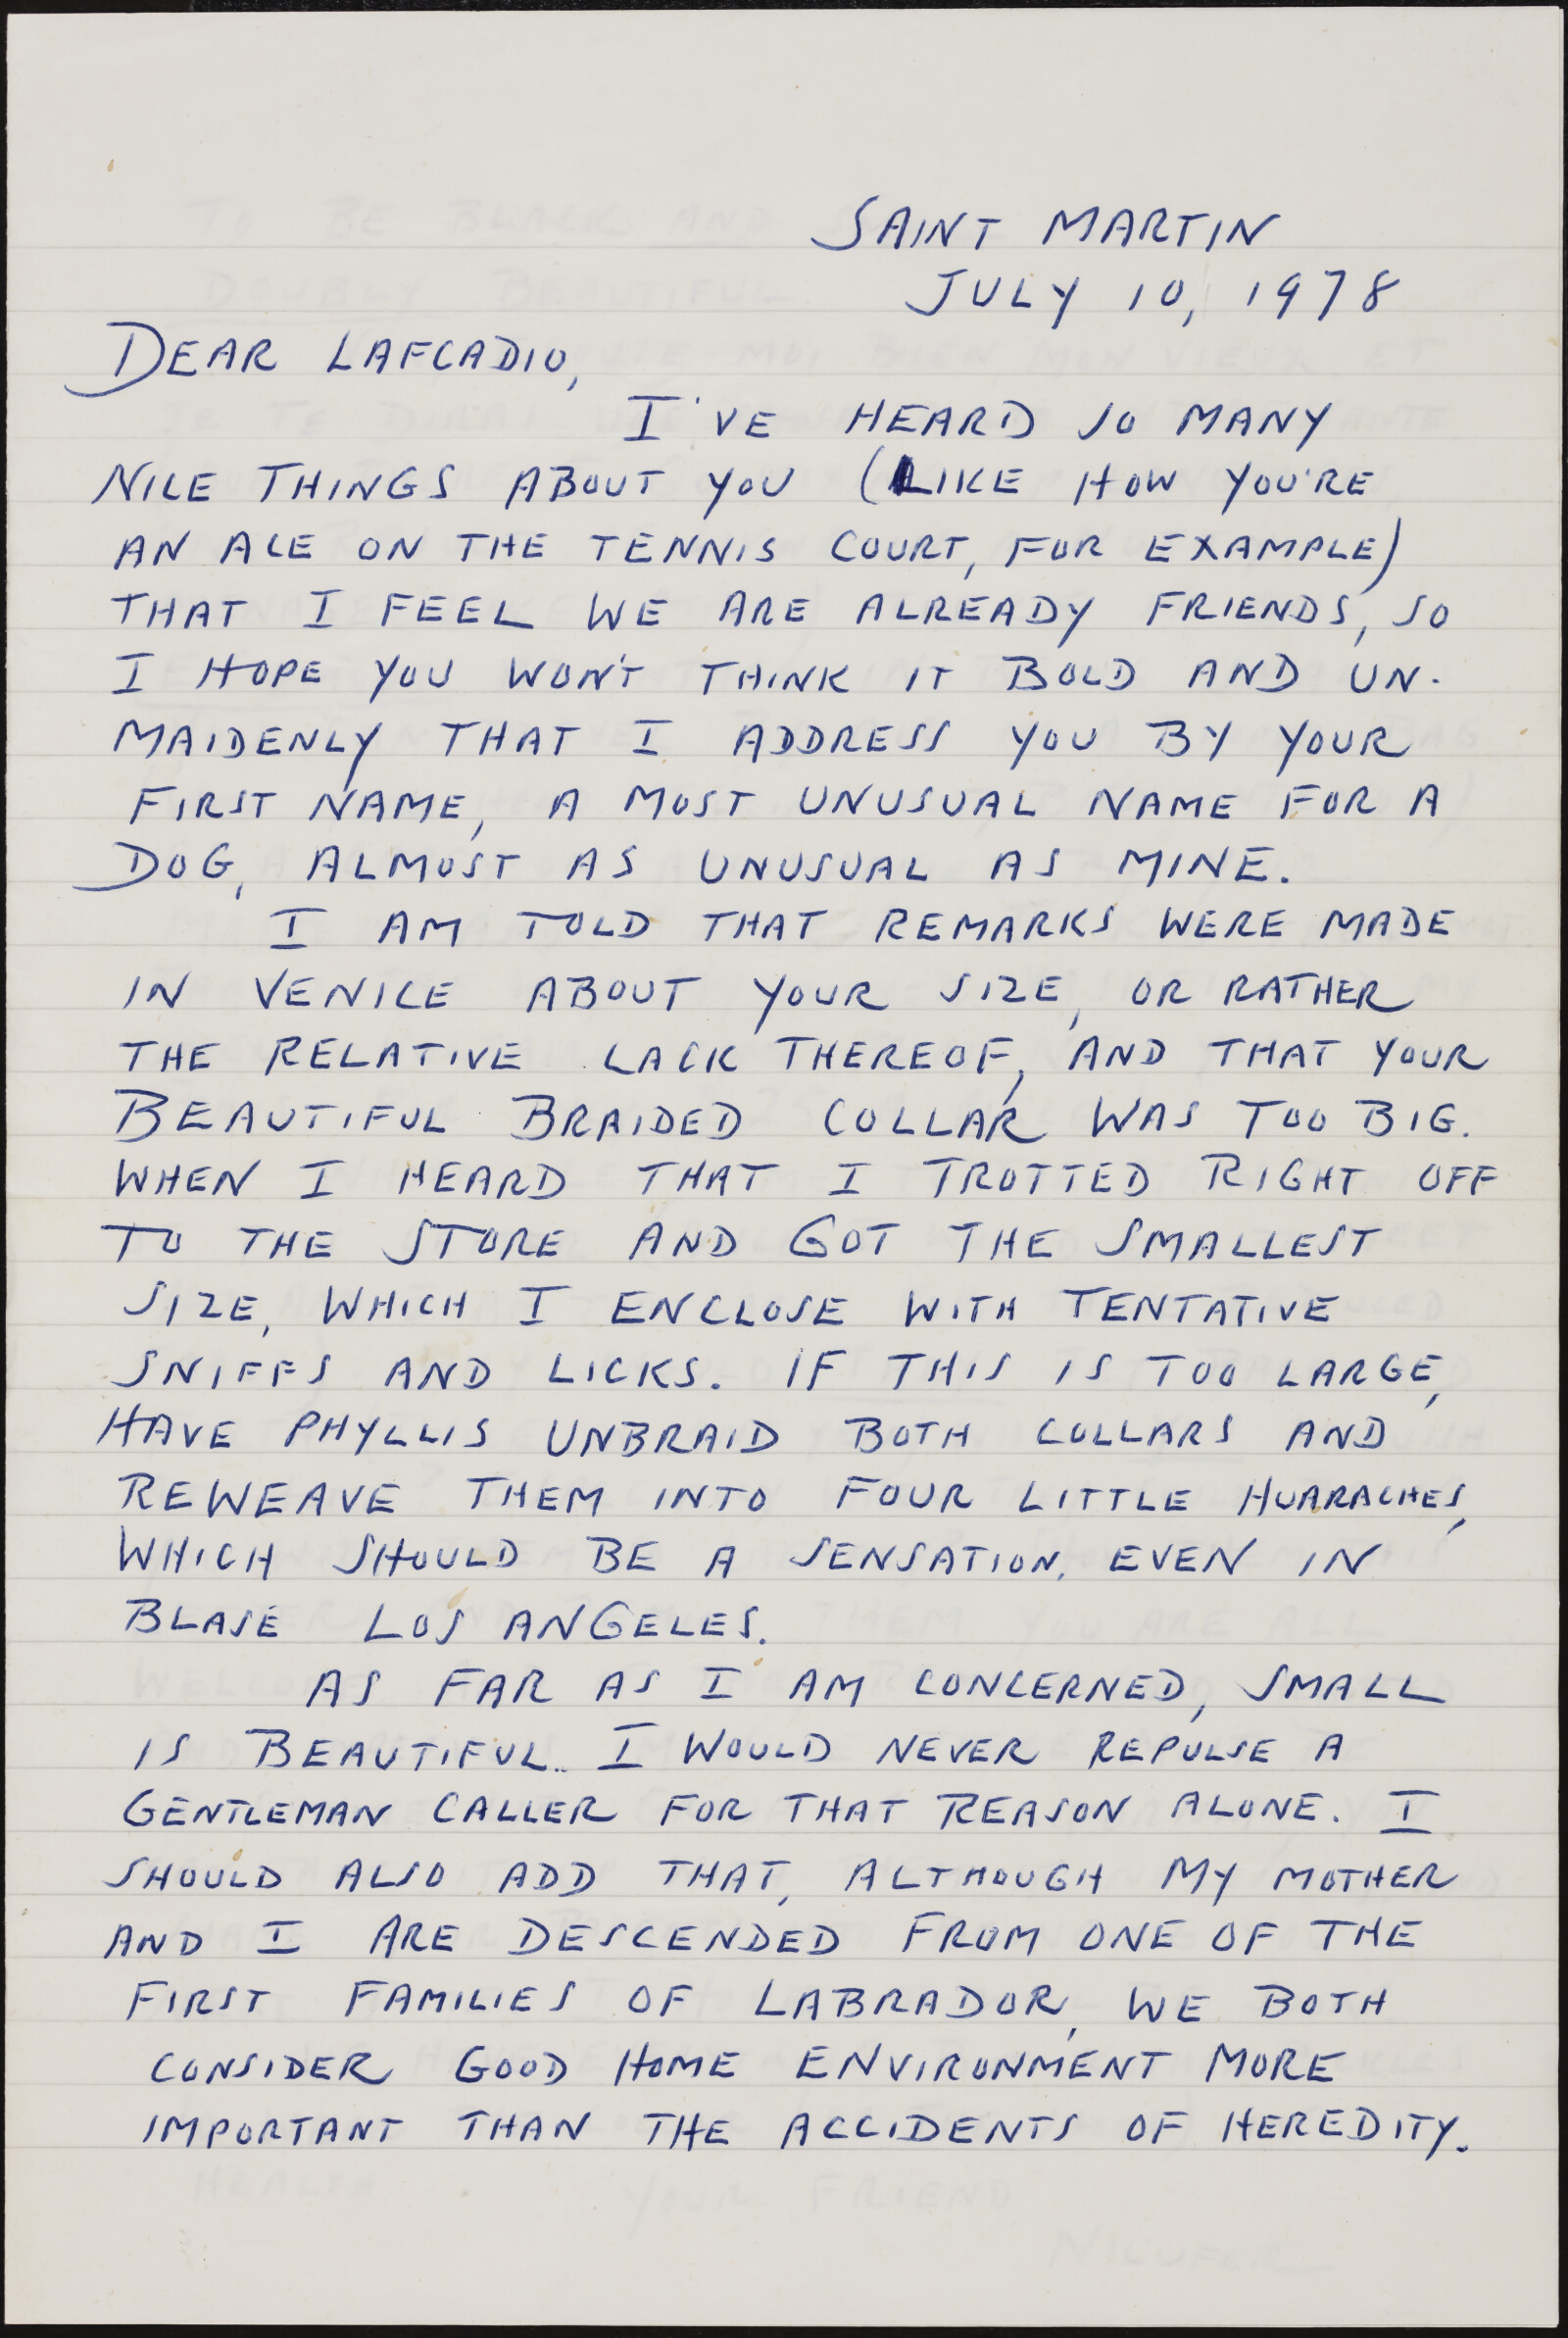 SAINT MARTIN
JULY 10, 1978
DEAR LAFCADIO,
I'VE HEARD SO MANY
NICE THINGS ABOUT YOU (LIKE HOW YOU'RE
AN ACE ON THE TENNIS COURT, FOR EXAMPLE)
THAT I FEEL WE ARE ALREADY FRIENDS, SO
I HOPE YOU WON'T THINK IT BOLD AND UN-
MAIDENLY THAT I ADDRESS YOU BY YOUR
FIRST NAME, A MOST UNUSUAL NAME FOR A
DOG, ALMOST AS UNUSUAL AS MINE.
I AM TOLD THAT REMARKS WERE MADE
IN VENICE ABOUT YOUR SIZE, OR RATHER
THE RELATIVE LACK THEREOF, AND THAT YOUR
BEAUTIFUL BRAIDED COLLAR WAS TOO BIG.
WHEN I HEARD THAT I TROTTED RIGHT OFF
TO THE STORE AND GOT THE SMALLEST
SIZE, WHICH I ENCLOSE WITH TENTATIVE
SNIFFS AND LICKS. IF THIS IS TOO LARGE,
HAVE PHYLLIS UNBRAID BOTH COLLARS AND
REWEAVE THEM INTO FOUR LITTLE HUARACHES,
WHICH SHOULD BE A SENSATION, EVEN IN
BLASÉ LOS ANGELES.
AS FAR AS I AM CONCERNED, SMALL
IS BEAUTIFUL. I WOULD NEVER REPULSE A
GENTLEMAN CALLER FOR THAT REASON ALONE. I
SHOULD ALSO ADD THAT, ALTHOUGH MY MOTHER
AND I ARE DESCENDED FROM ONE OF THE
FIRST FAMILIES OF LABRADOR, WE BOTH
CONSIDER GOOD HOME ENVIRONMENT MORE
IMPORTANT THAN THE ACCIDENTS OF HEREDITY.